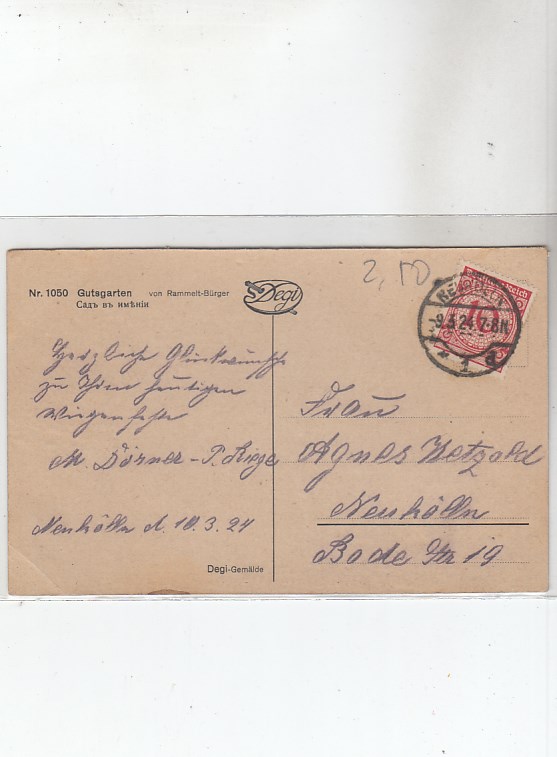 2,50
Nr. 1050 Gutsgarten von Rammelt-Bürger
Садъ въ имѣніи
Degi
Reich
NEUKÖLLN
-9.3.24.7-8N.
* 1 a
Herzliche Glückwünsche
zu Ihrem heutigen
Wiegenfeste
M. Dörner - P.
Neukölln d. 10.3.24
Degi-Gemälde
Frau
Agnes Petzold
Neukölln
Bode Str 19